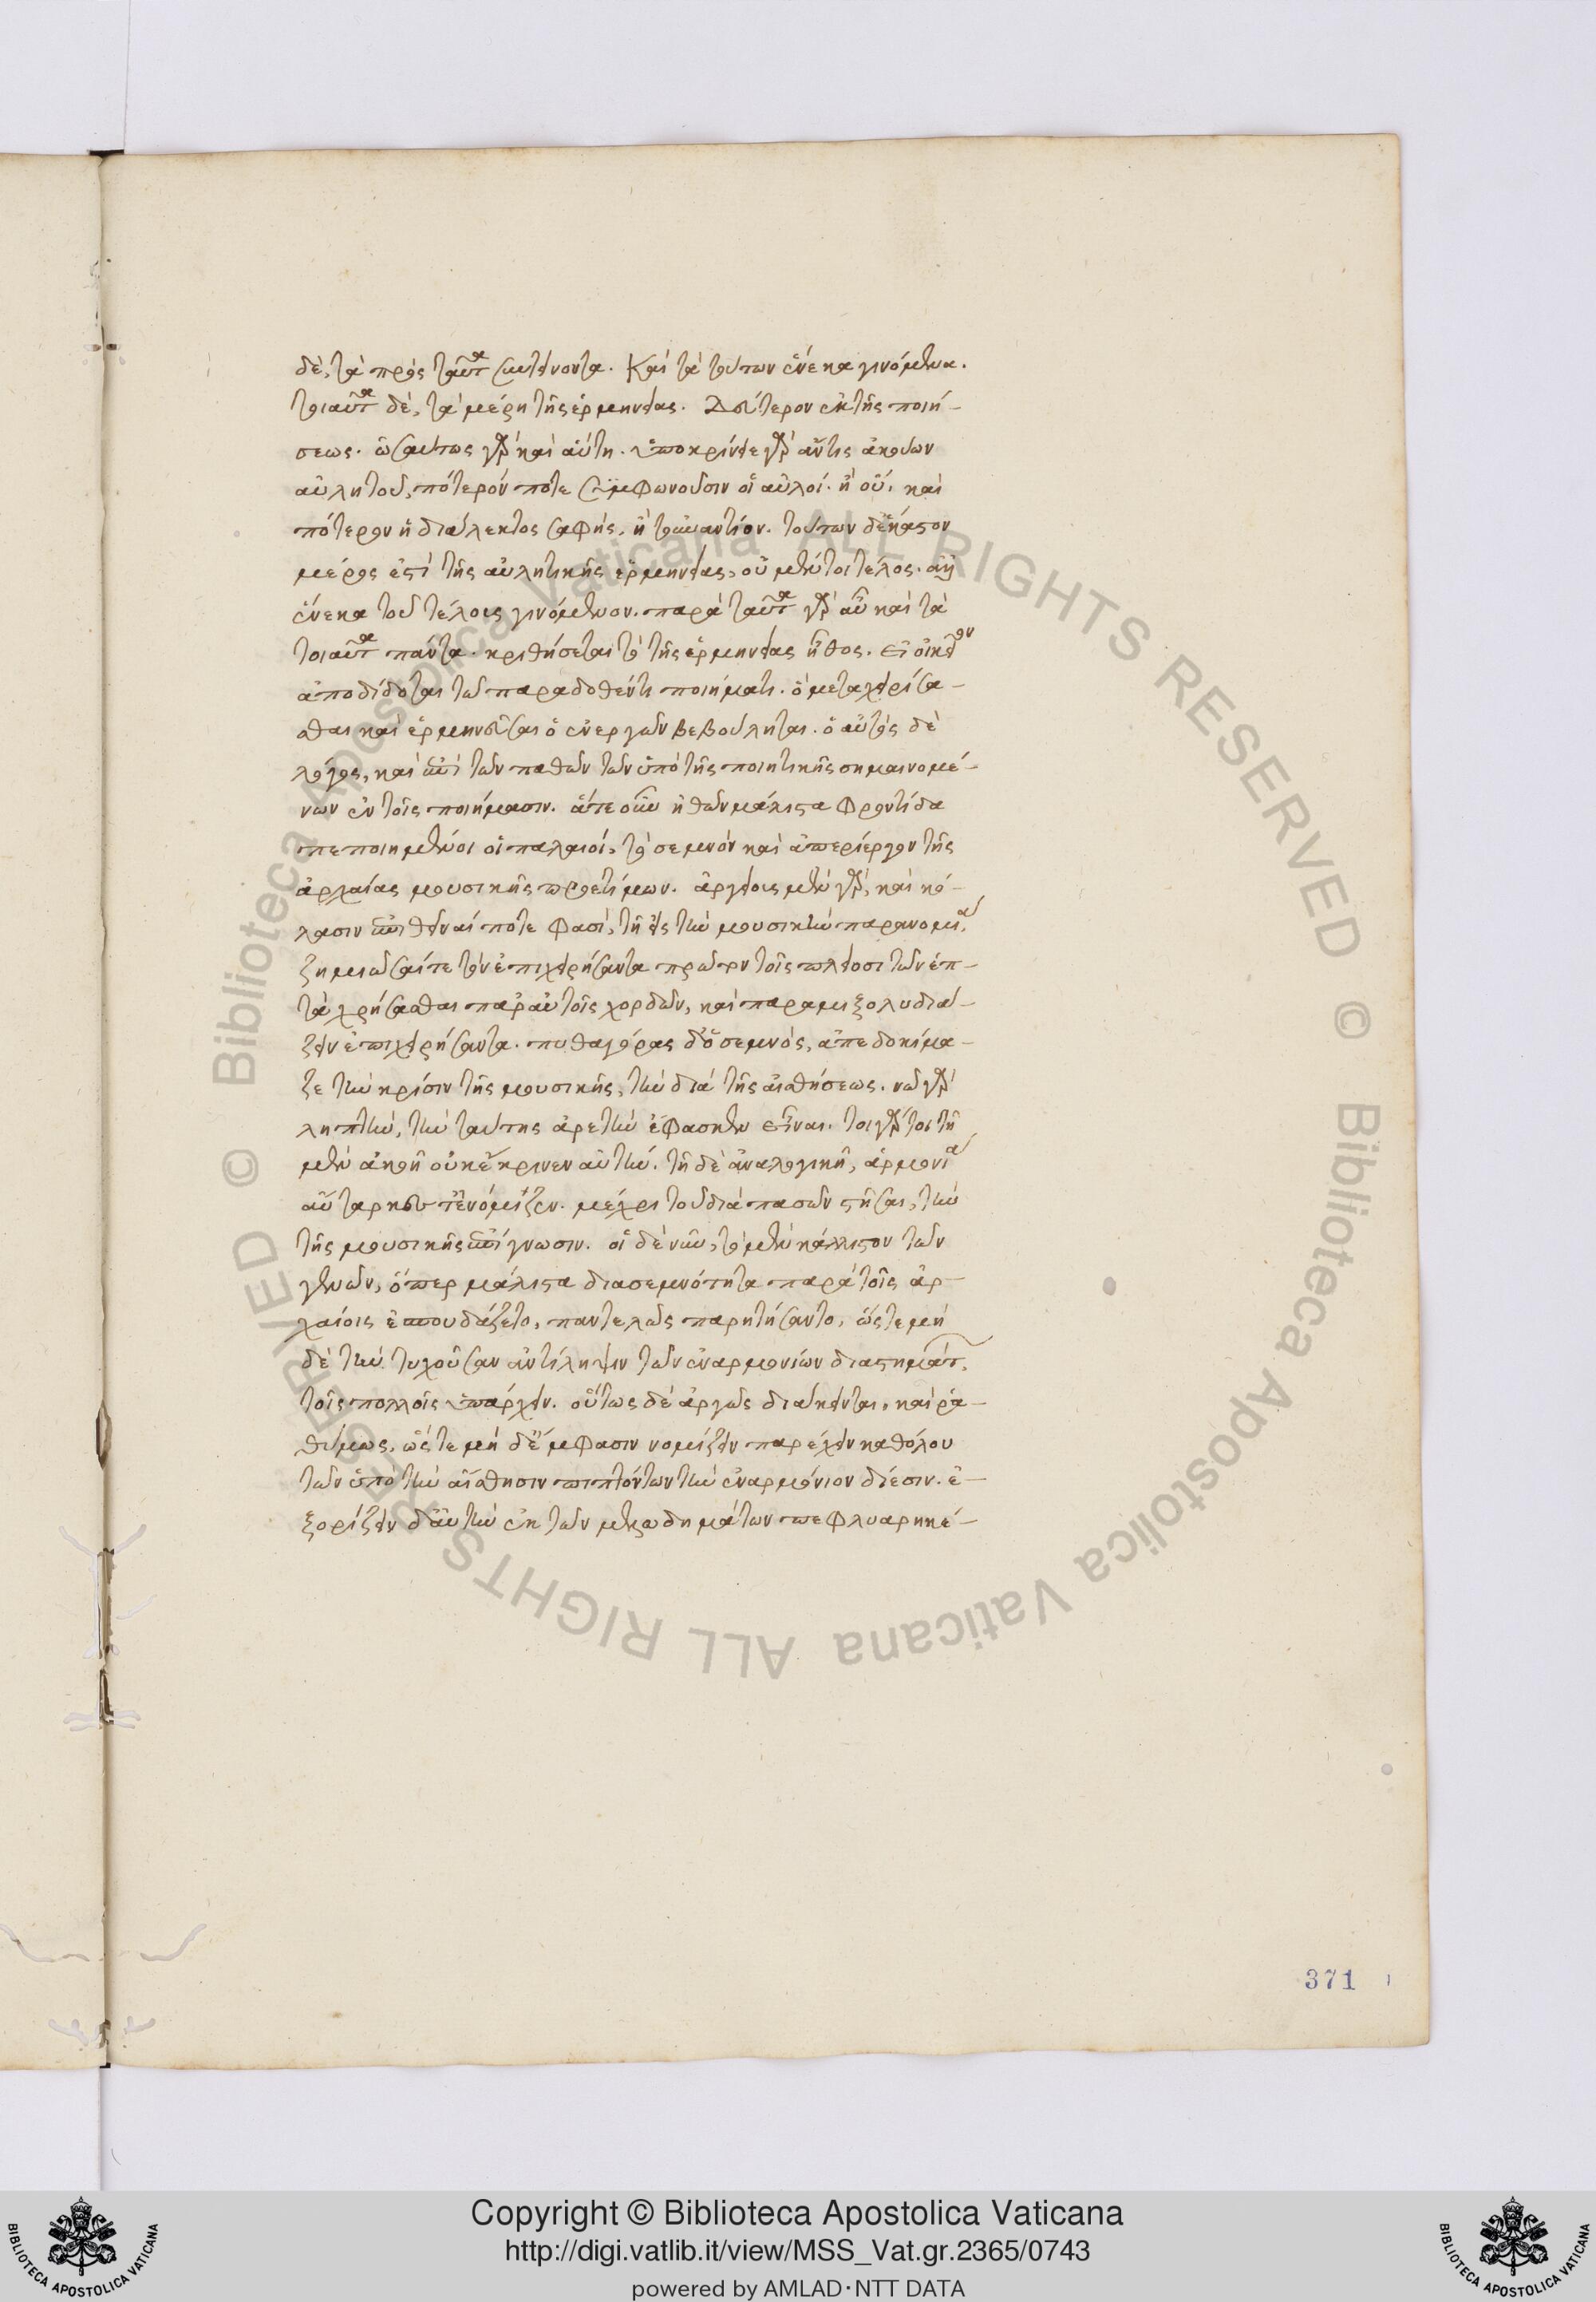 δὲ, τὰ πρὸς ταῦτα συντείνοντα. Καὶ τὰ τούτων ἕνεκα γινόμενα.
τοιαῦτα δὲ, τὰ μέρη τῆς ἑρμηνείας. Δεύτερον ἐκ τῆς ποιή-
σεως. ὡσαύτως γὰρ καὶ αὐτὴ. ὑποκρίνειε γὰρ ἄν τις ἀκούων
αὐλητοῦ, πότερόν ποτε συμφωνοῦσιν οἱ αὐλοί. ἢ οὔ. καὶ
πότερον ἡ διάλεκτος σαφὴς, ἢ τοὐναντίον. τούτων δ' ἕκαστον
μέρος ἐστὶ τῆς αὐλητικῆς ἑρμηνείας, οὐ μέντοι τέλος. ἀλλ'
ἕνεκα τοῦ τέλους γινόμενον. παρὰ ταῦτα γὰρ αὖ καὶ τὰ
τοιαῦτα πάντα. κριθήσεται τὸ τῆς ἑρμηνείας ἦθος. εἰ οἰκεῖον
ἀποδίδοται τῶ παραδοθέντι ποιήματι. ὃ μεταχειρίσα-
σθαι καὶ ἑρμηνεῦσαι ὁ ἐνεργῶν βεβούληται. ὁ αὐτὸς δὲ
λόγος, καὶ ἐπὶ τῶν παθῶν τῶν ὑπὸ τῆς ποιητικῆς σημαινομέ-
νων ἐν τοῖς ποιήμασιν. ἅτε οὖν ἠθῶν μάλιστα φροντίδα
πεποιημένοι οἱ παλαιοὶ, τὸ σεμνὸν καὶ ἀπερίεργον τῆς
ἀρχαίας μουσικῆς προετίμων. ἀργείους μὲν γὰρ, καὶ κό-
λασιν ἐπιθεῖναί ποτε φασὶ, τῇ εἰς τὴν μουσικὴν παρανομία.
ζημιῶσαί τε τὸν ἐπιχειρήσαντα πρῶτον τοῖς πλείοσι τῶν ἑπ-
τὰ χρήσασθαι παρ' αὐτοῖς χορδῶν, καὶ παραμιξολυδιά-
ζειν ἐπιχειρήσαντα. πυθαγόρας δ' ὁ σεμνὸς, ἀπεδοκίμα-
ζε τὴν κρίσιν τῆς μουσικῆς, τὴν διὰ τῆς αἰσθήσεως. νῶ γὰρ
ληπτὴν, τὴν ταύτης ἀρετὴν ἔφασκεν εἶναι. τοιγάρτοι τῇ
μὲν ἀκοῇ οὐκ ἔκρινεν αὐτὴν. τῇ δὲ ἀναλογικῇ, ἁρμονία
αὔταρκές τ' ἐνόμιζεν. μέχρι τοῦ διὰ πασῶν στῆσαι, τὴν
τῆς μουσικῆς ἐπίγνωσιν. οἱ δὲ νῦν, τὸ μὲν κάλλιστον τῶν
γενῶν, ὅπερ μάλιστα διὰ σεμνότητα παρὰ τοῖς ἀρ-
χαίοις ἐσπουδάζετο, παντελῶς παρητήσαντο, ὥστε μὴ
δὲ τὴν τυχοῦσαν ἀντίληψιν τῶν ἐναρμονίων διαστημάτων
τοῖς πολλοῖς ὑπάρχειν. οὕτως δὲ ἀργῶς διάκεινται, καὶ ρα-
θύμως, ὥστε μὴ δ' ἔμφασιν νομίζειν παρέχειν καθόλου
τῶν ὑπὸ τὴν αἴσθησιν πιπτόντων τὴν ἐναρμόνιον δίεσιν. ἐ-
ξορίζειν δ' αὐτὴν ἐκ τῶν μελῳδημάτων πεφλυαρηκέ-
371
Copyright © Biblioteca Apostolica Vaticana
http://digi.vatlib.it/view/MSS_Vat.gr.2365/0743
powered by AMLAD·NTT DATA